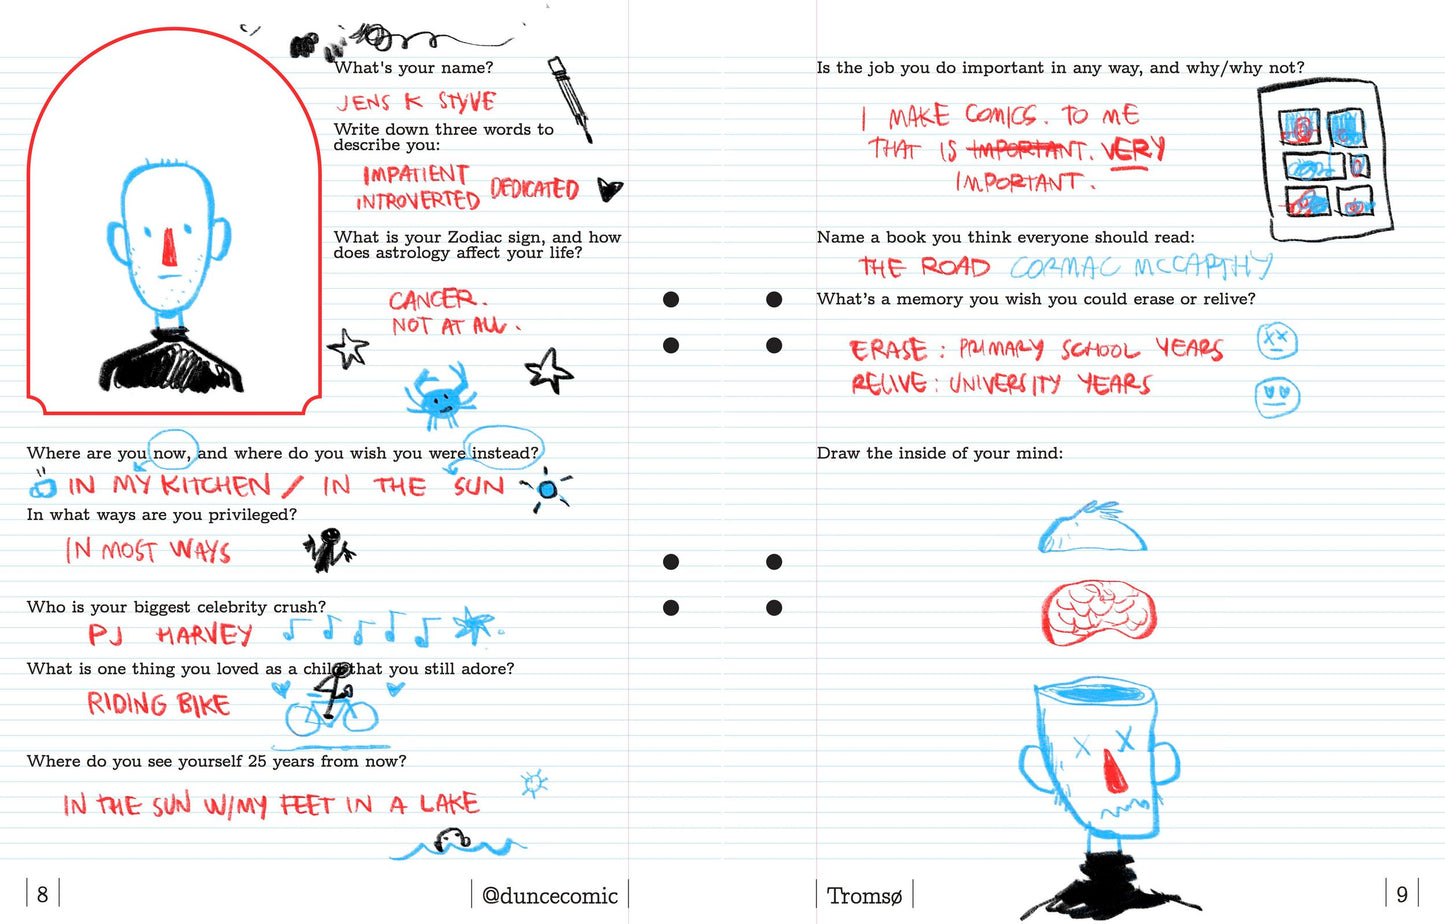 What's your name?
JENS K STYVE
Write down three words to
describe you:
IMPATIENT
INTROVERTED DEDICATED
What is your Zodiac sign, and how
does astrology affect your life?
CANCER.
NOT AT ALL.
Where are you now, and where do you wish you were instead?
IN MY KITCHEN / IN THE SUN
In what ways are you privileged?
IN MOST WAYS
Who is your biggest celebrity crush?
PJ HARVEY
What is one thing you loved as a child that you still adore?
RIDING BIKE
Where do you see yourself 25 years from now?
IN THE SUN W/MY FEET IN A LAKE
8
@duncecomic
Is the job you do important in any way, and why/why not?
I MAKE COMICS. TO ME
THAT IS IMPORTANT. VERY
IMPORTANT.
Name a book you think everyone should read:
THE ROAD CORMAC MCCARTHY
What's a memory you wish you could erase or relive?
ERASE: PRIMARY SCHOOL YEARS
RELIVE: UNIVERSITY YEARS
Draw the inside of your mind:
Tromsø
9